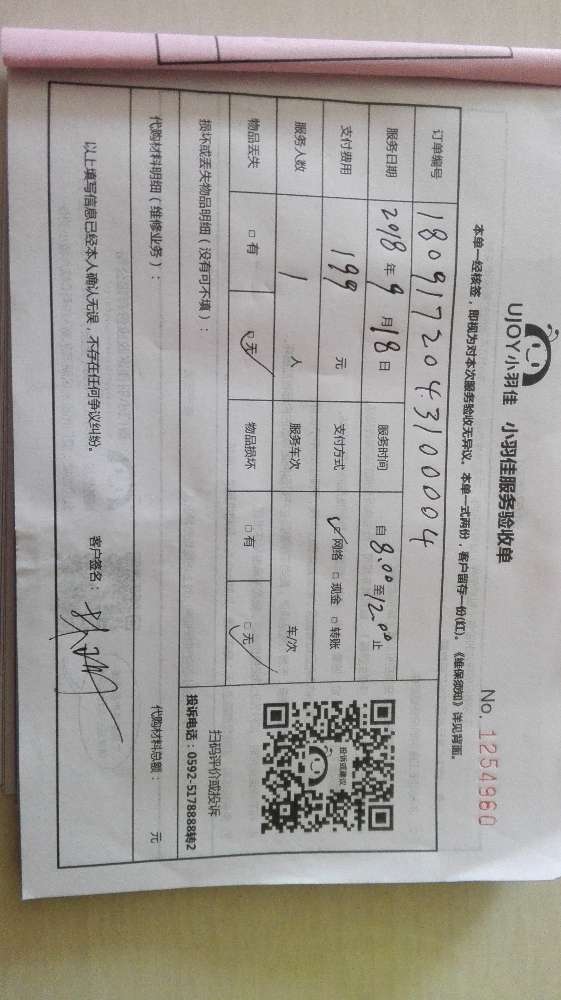 UJOY小羽佳 小羽佳服务验收单
No. 1254960
本单一经核签，即视为对本次服务验收无异议。本单一式两份，客户留存一份(红)。《维保须知》详见背面。
订单编号 180917204310004
服务日期 2018年9月18日 服务时间 自8.00至12.00止
支付费用 199元 支付方式 ☑网络 □现金 □转账
服务人数 1人 服务车次 车/次
物品丢失 □有 ☑无 物品损坏 □有 ☑无
投诉或建议
扫码评价或投诉
投诉电话：0592-5178888转2
损坏或丢失物品明细（没有可不填）：
代购材料明细（维修业务）： 代购材料总额： 元
以上填写信息已经本人确认无误，不存在任何争议纠纷。 客户签名：